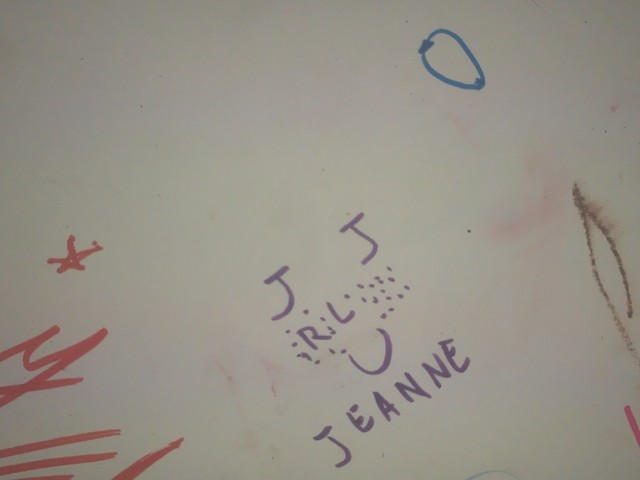 J J
R L
JEANNE